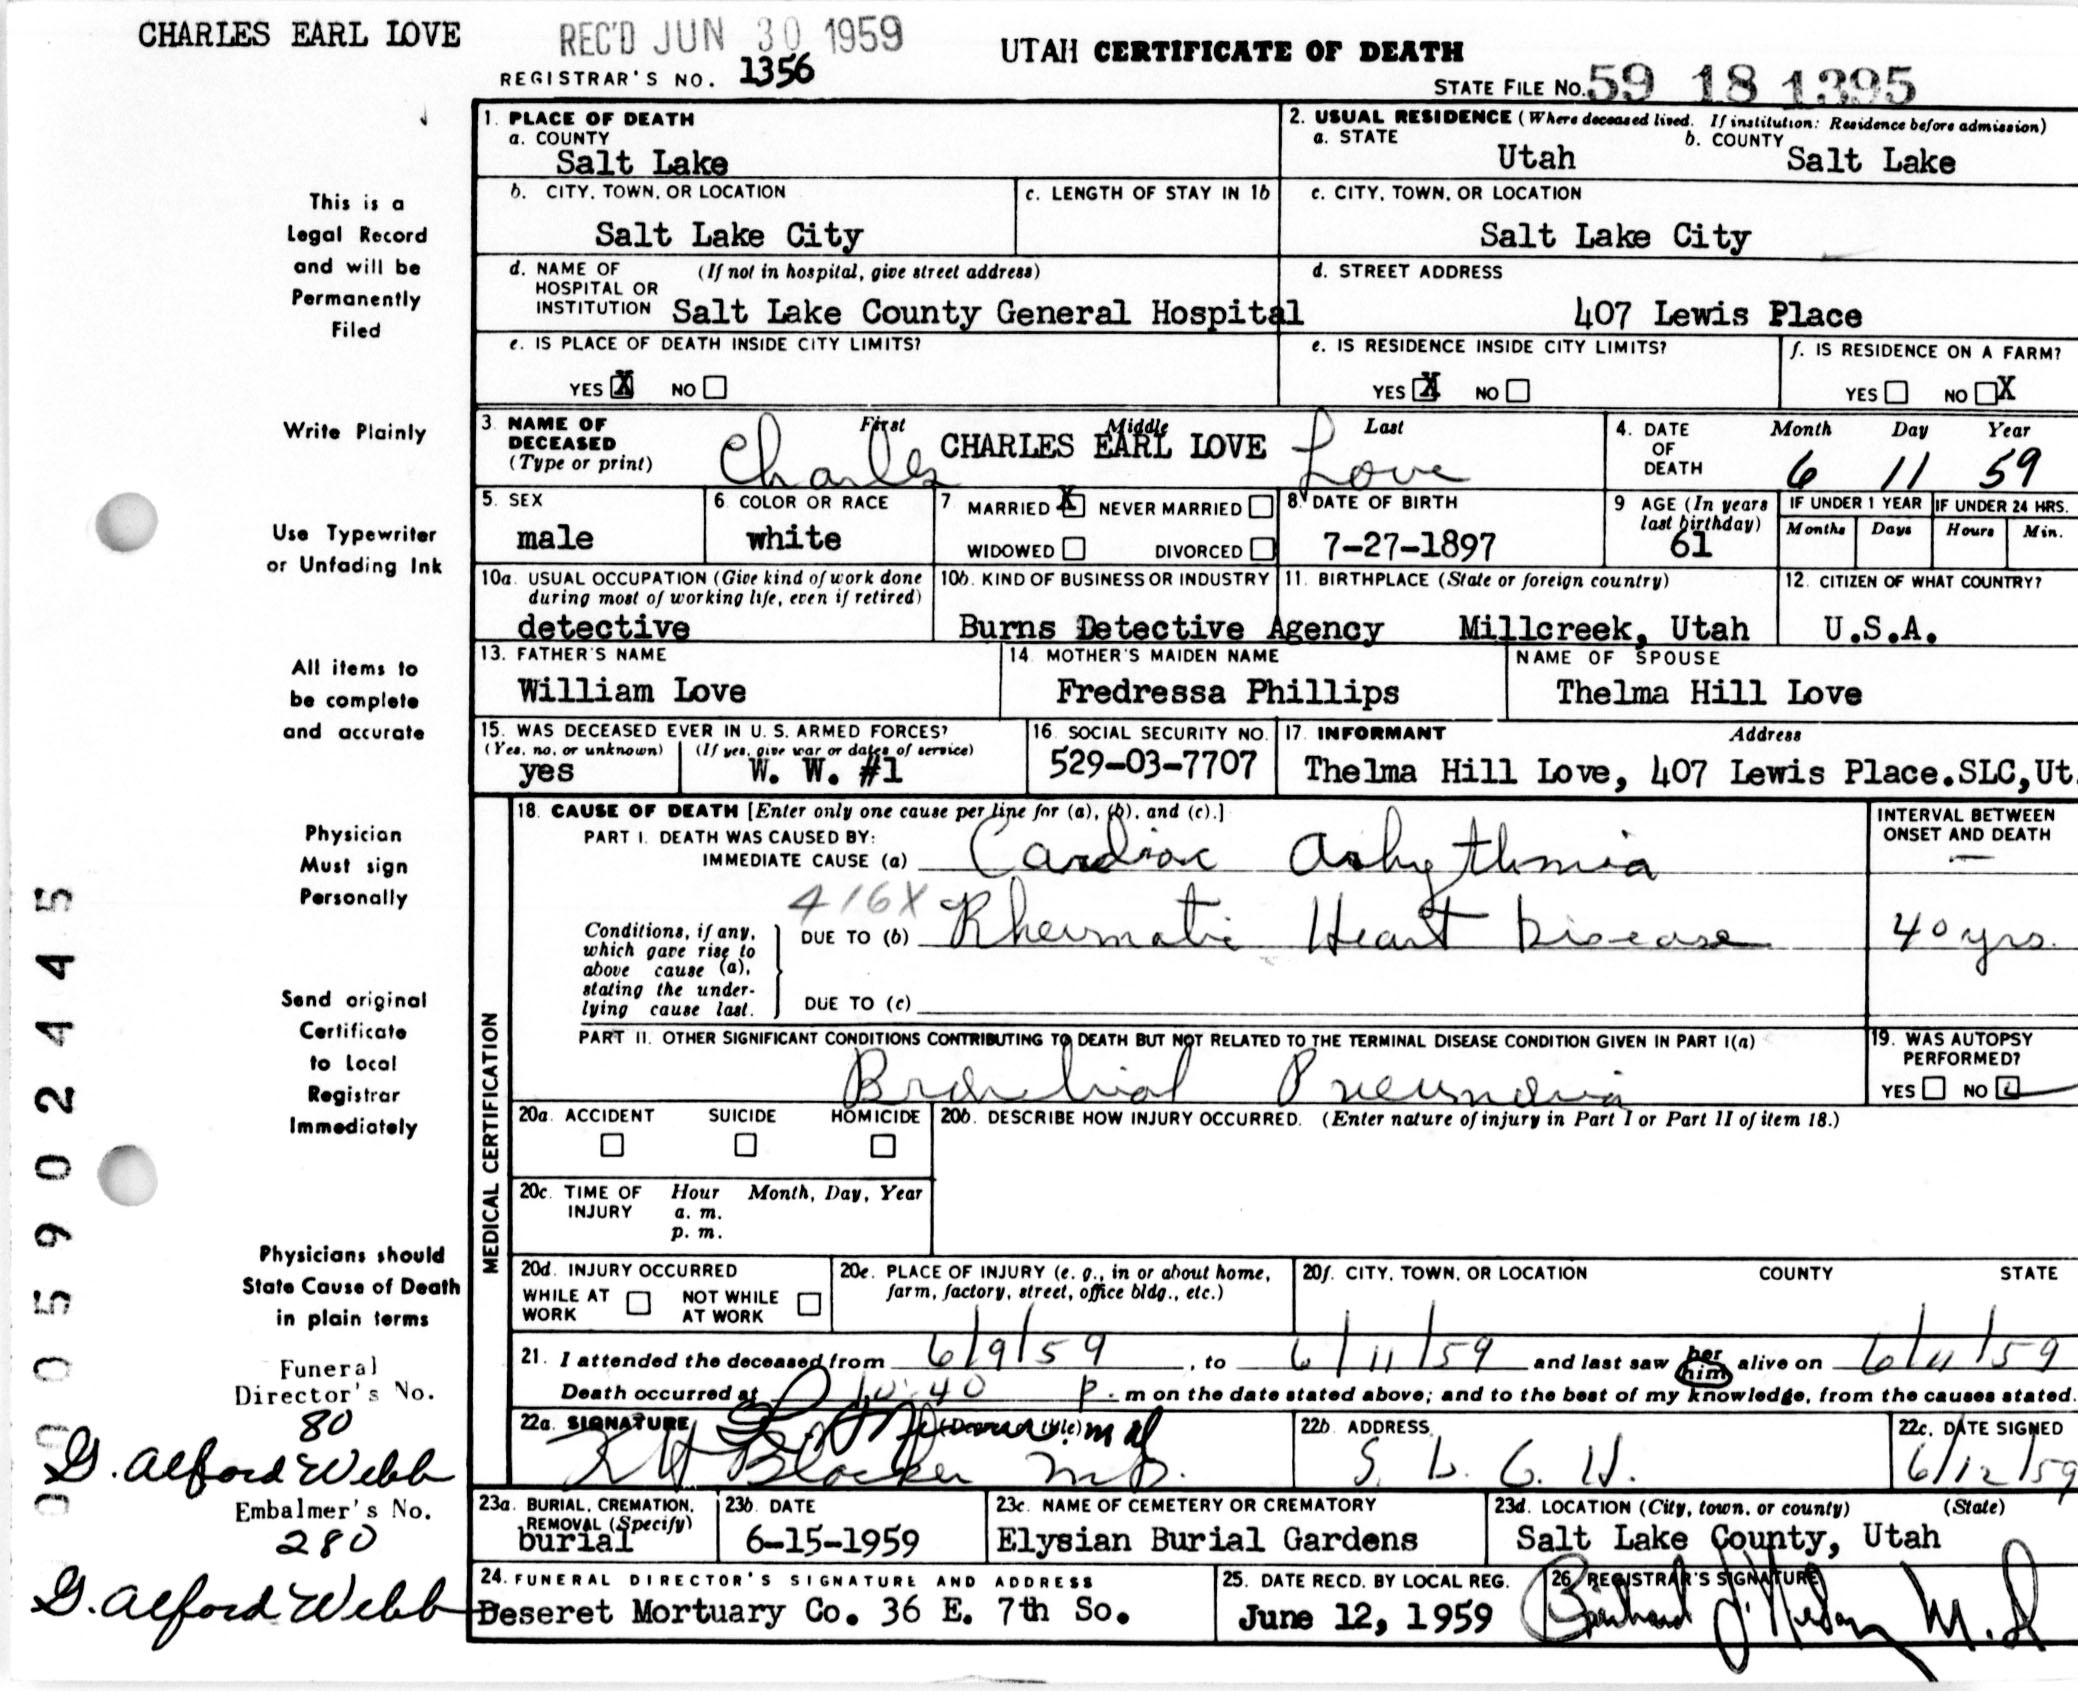 CHARLES EARL LOVE
REC'D JUN 30 1959
UTAH CERTIFICATE OF DEATH
REGISTRAR'S NO. 1356
STATE FILE NO. 59 18 1395
1. PLACE OF DEATH
a. COUNTY
Salt Lake
2. USUAL RESIDENCE (Where deceased lived. If institution: Residence before admission)
a. STATE Utah b. COUNTY Salt Lake
b. CITY, TOWN, OR LOCATION
Salt Lake City
c. LENGTH OF STAY IN 1b
c. CITY, TOWN, OR LOCATION
Salt Lake City
d. NAME OF HOSPITAL OR INSTITUTION (If not in hospital, give street address)
Salt Lake County General Hospital
d. STREET ADDRESS
407 Lewis Place
e. IS PLACE OF DEATH INSIDE CITY LIMITS?
YES X NO
e. IS RESIDENCE INSIDE CITY LIMITS?
YES X NO
f. IS RESIDENCE ON A FARM?
YES NO X
3. NAME OF DECEASED (Type or print)
First Middle Last
Charles CHARLES EARL LOVE Love
4. DATE OF DEATH
Month Day Year
6 11 59
5. SEX
male
6. COLOR OR RACE
white
7. MARRIED X NEVER MARRIED
WIDOWED DIVORCED
8. DATE OF BIRTH
7-27-1897
9. AGE (In years last birthday)
61
IF UNDER 1 YEAR
Months Days
IF UNDER 24 HRS.
Hours Min.
10a. USUAL OCCUPATION (Give kind of work done during most of working life, even if retired)
detective
10b. KIND OF BUSINESS OR INDUSTRY
Burns Detective Agency
11. BIRTHPLACE (State or foreign country)
Millcreek, Utah
12. CITIZEN OF WHAT COUNTRY?
U.S.A.
13. FATHER'S NAME
William Love
14. MOTHER'S MAIDEN NAME
Fredressa Phillips
NAME OF SPOUSE
Thelma Hill Love
15. WAS DECEASED EVER IN U. S. ARMED FORCES?
(Yes, no, or unknown) (If yes, give war or dates of service)
yes W. W. #1
16. SOCIAL SECURITY NO.
529-03-7707
17. INFORMANT Address
Thelma Hill Love, 407 Lewis Place.SLC,Ut.
MEDICAL CERTIFICATION
18. CAUSE OF DEATH [Enter only one cause per line for (a), (b), and (c).]
PART I. DEATH WAS CAUSED BY:
IMMEDIATE CAUSE (a) Cardiac Arhythmia
INTERVAL BETWEEN ONSET AND DEATH
—
416X
Conditions, if any, which gave rise to above cause (a), stating the underlying cause last.
DUE TO (b) Rheumatic Heart Disease 40 yrs.
DUE TO (c)
PART II. OTHER SIGNIFICANT CONDITIONS CONTRIBUTING TO DEATH BUT NOT RELATED TO THE TERMINAL DISEASE CONDITION GIVEN IN PART I(a)
Bronchial Pneumonia
19. WAS AUTOPSY PERFORMED?
YES NO
20a. ACCIDENT SUICIDE HOMICIDE
20b. DESCRIBE HOW INJURY OCCURRED. (Enter nature of injury in Part I or Part II of item 18.)
20c. TIME OF INJURY Hour Month, Day, Year
a. m.
p. m.
20d. INJURY OCCURRED
WHILE AT WORK NOT WHILE AT WORK
20e. PLACE OF INJURY (e. g., in or about home, farm, factory, street, office bldg., etc.)
20f. CITY, TOWN, OR LOCATION COUNTY STATE
21. I attended the deceased from 6/9/59, to 6/11/59 and last saw her him alive on 6/11/59
Death occurred at 10:40 P. m on the date stated above; and to the best of my knowledge, from the causes stated.
22a. SIGNATURE (Degree or title)
K H Blocker M.D.
22b. ADDRESS
S. L. G. H.
22c. DATE SIGNED
6/12/59
23a. BURIAL, CREMATION, REMOVAL (Specify)
burial
23b. DATE
6-15-1959
23c. NAME OF CEMETERY OR CREMATORY
Elysian Burial Gardens
23d. LOCATION (City, town, or county) (State)
Salt Lake County, Utah
24. FUNERAL DIRECTOR'S SIGNATURE AND ADDRESS
Deseret Mortuary Co. 36 E. 7th So.
25. DATE RECD. BY LOCAL REG.
June 12, 1959
26. REGISTRAR'S SIGNATURE
M.D.
This is a
Legal Record
and will be
Permanently
Filed
Write Plainly
Use Typewriter
or Unfading Ink
All items to
be complete
and accurate
Physician
Must sign
Personally
Send original
Certificate
to Local
Registrar
Immediately
Physicians should
State Cause of Death
in plain terms
Funeral
Director's No.
80
G. Alford Webb
Embalmer's No.
280
G. Alford Webb
005902445